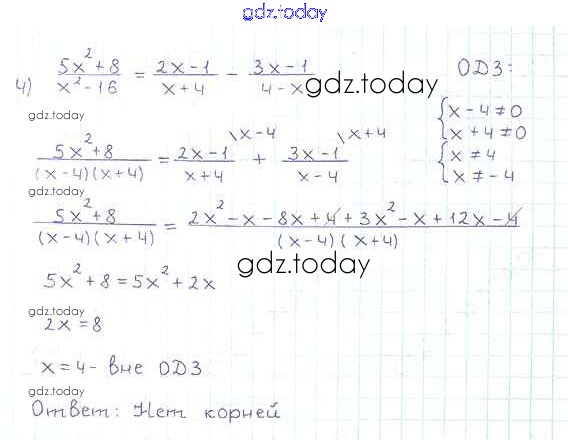 gdz.today
4) (5x² + 8)/(x² - 16) = (2x - 1)/(x + 4) - (3x - 1)/(4 - x) gdz.today ОДЗ:
gdz.today
{x - 4 ≠ 0
{x + 4 ≠ 0
(5x² + 8)/((x - 4)(x + 4)) = (2x - 1)/(x + 4) \x - 4 + (3x - 1)/(x - 4) \x + 4
{x ≠ 4
{x ≠ - 4
gdz.today
(5x² + 8)/((x - 4)(x + 4)) = (2x² - x - 8x + 4 + 3x² - x + 12x - 4)/((x - 4)(x + 4))
gdz.today
5x² + 8 = 5x² + 2x
gdz.today
2x = 8
x = 4 - вне ОДЗ
gdz.today
Ответ: Нет корней